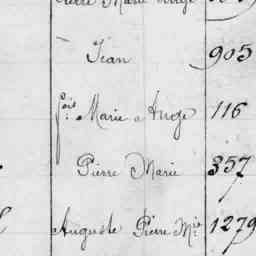 Pierre Marie
Jean 905
fois Marie Ange 116
Pierre Marie 357
Auguste Pierre Mie 1279